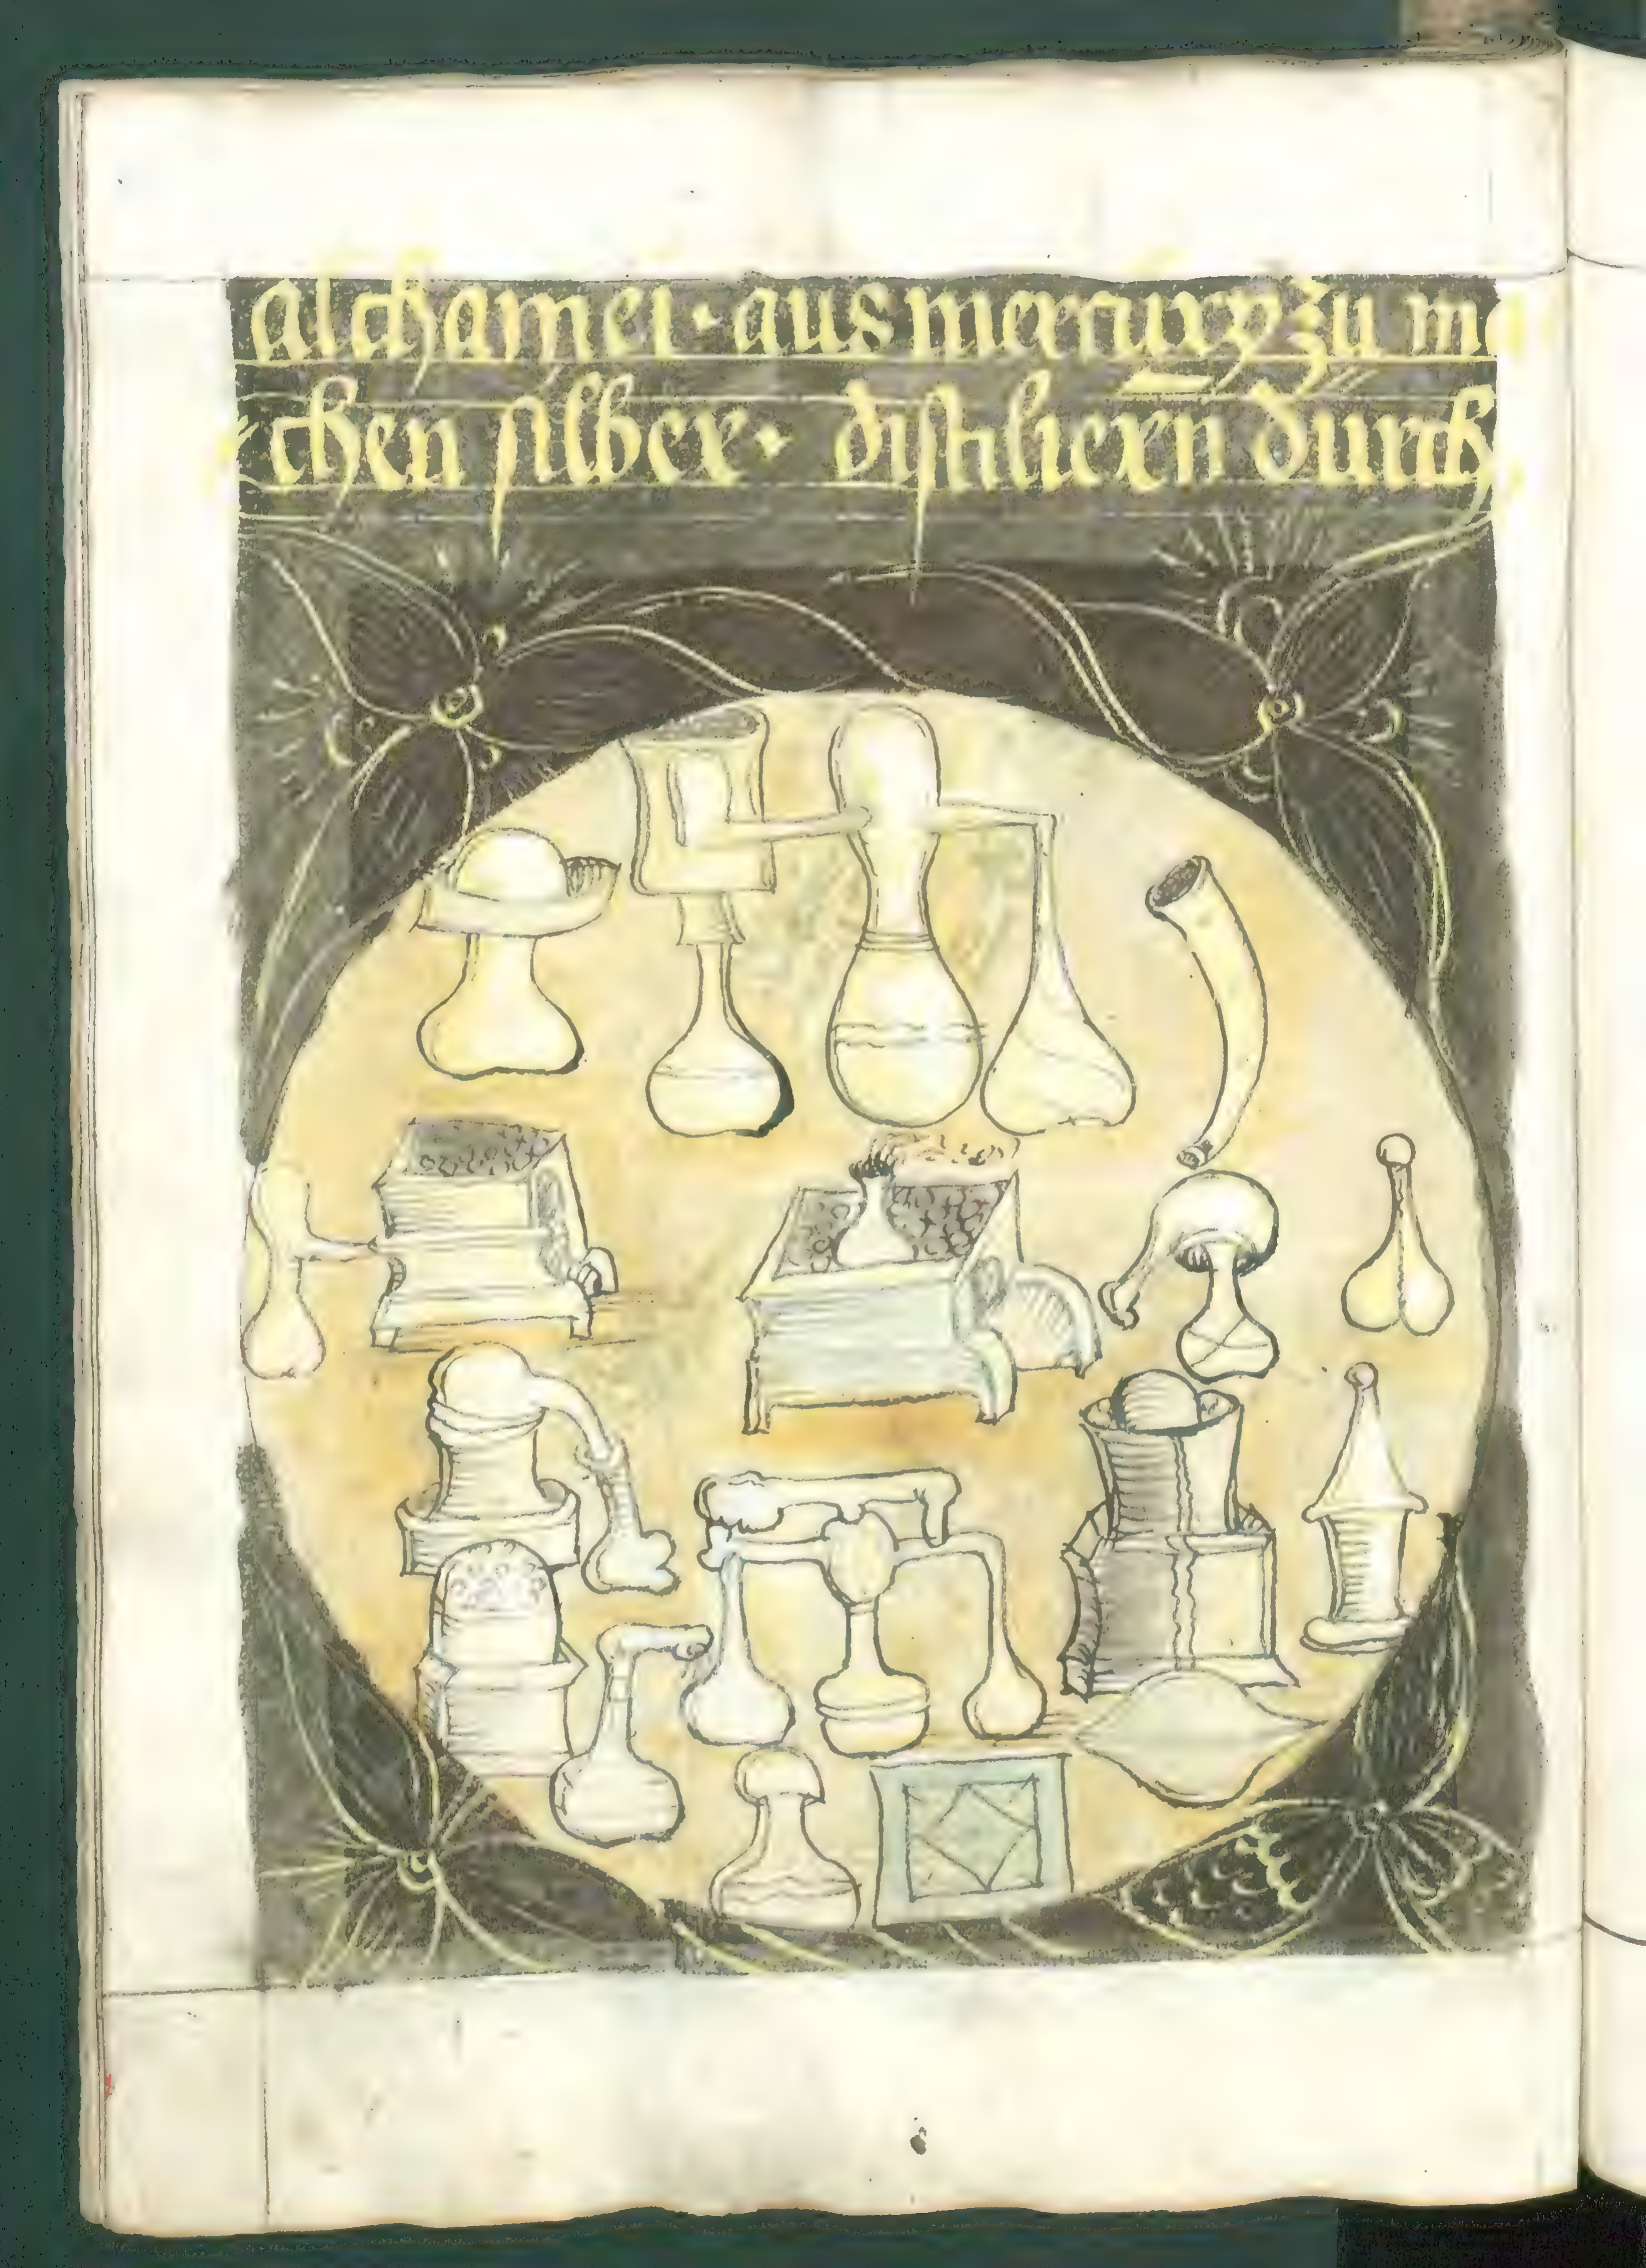 alchamei · aus mercurÿ zu ma
chen silber · distiliern̄ durch